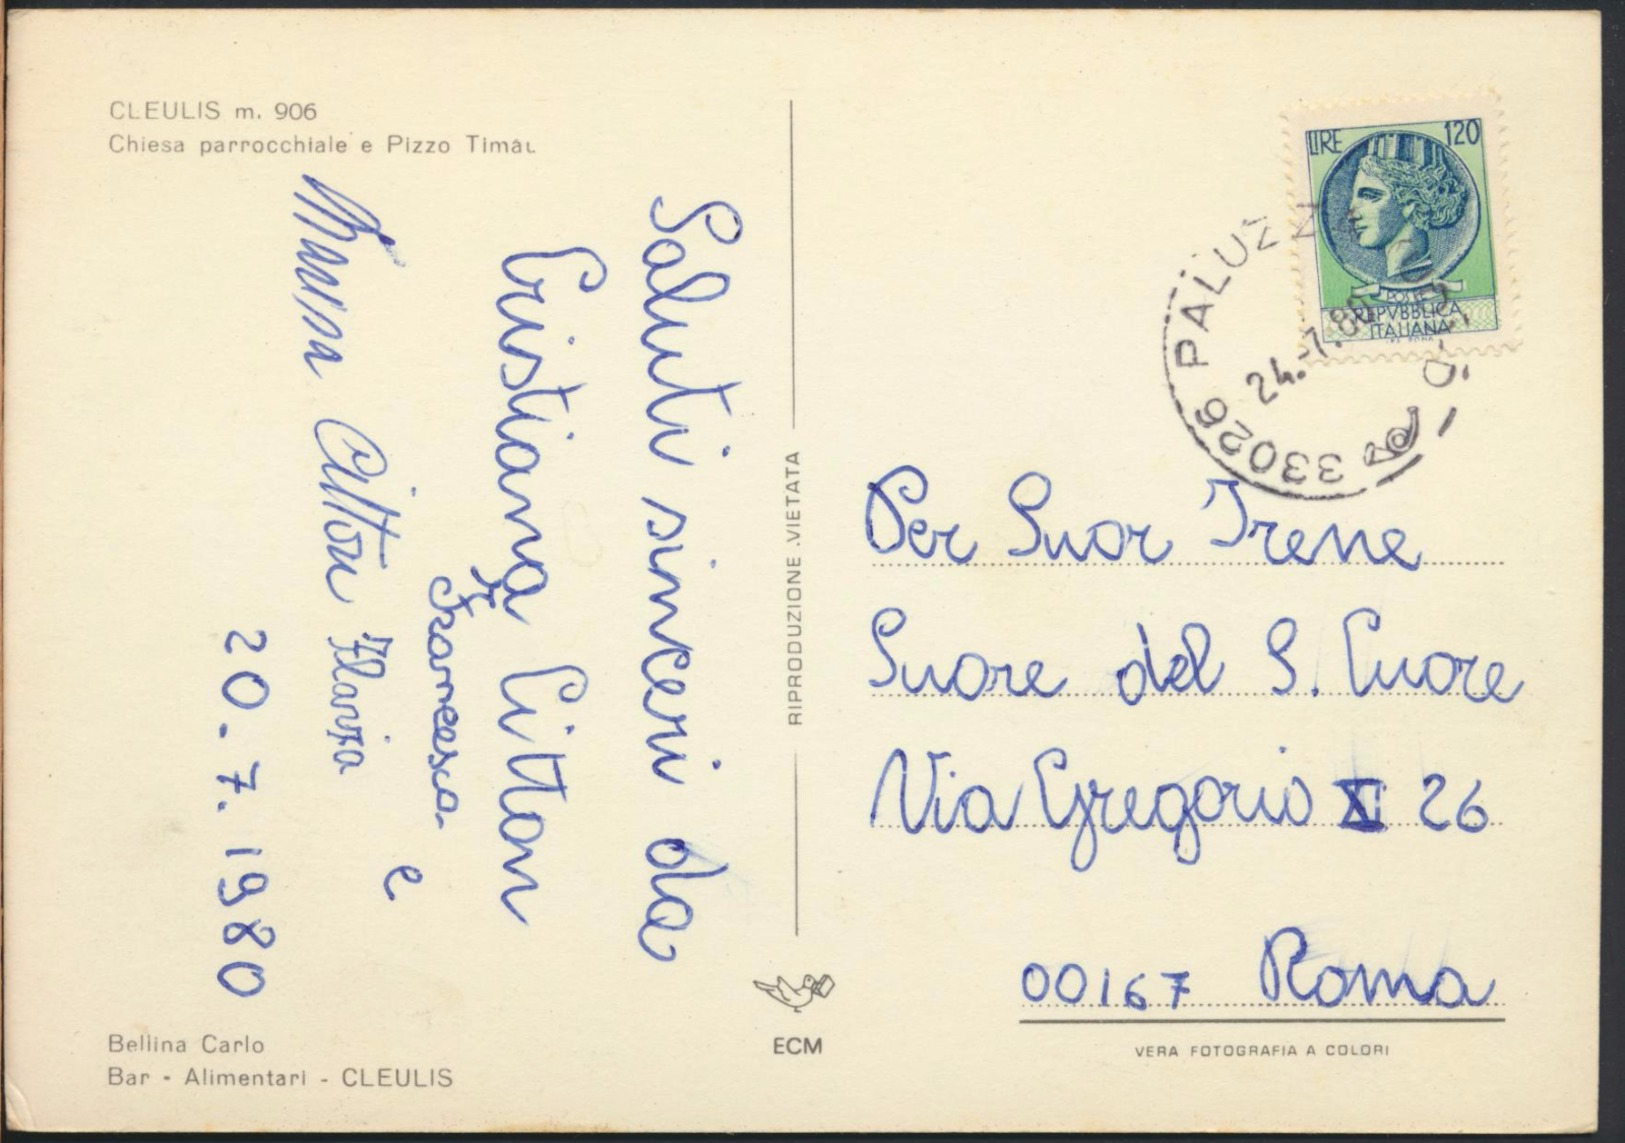 CLEULIS m. 906
Chiesa parrocchiale e Pizzo Timâu
Saluti sinceri da
Cristiana Citton
Francesca
e
Citton Flavia
20.7.1980
RIPRODUZIONE VIETATA
LIRE 120
POSTE
REPVBBLICA
ITALIANA
33026 PALUZZ
24.-7.80
Per Suor Irene
Suore del S. Cuore
Via Gregorio XI 26
00167 Roma
Bellina Carlo
Bar - Alimentari - CLEULIS
ECM
VERA FOTOGRAFIA A COLORI